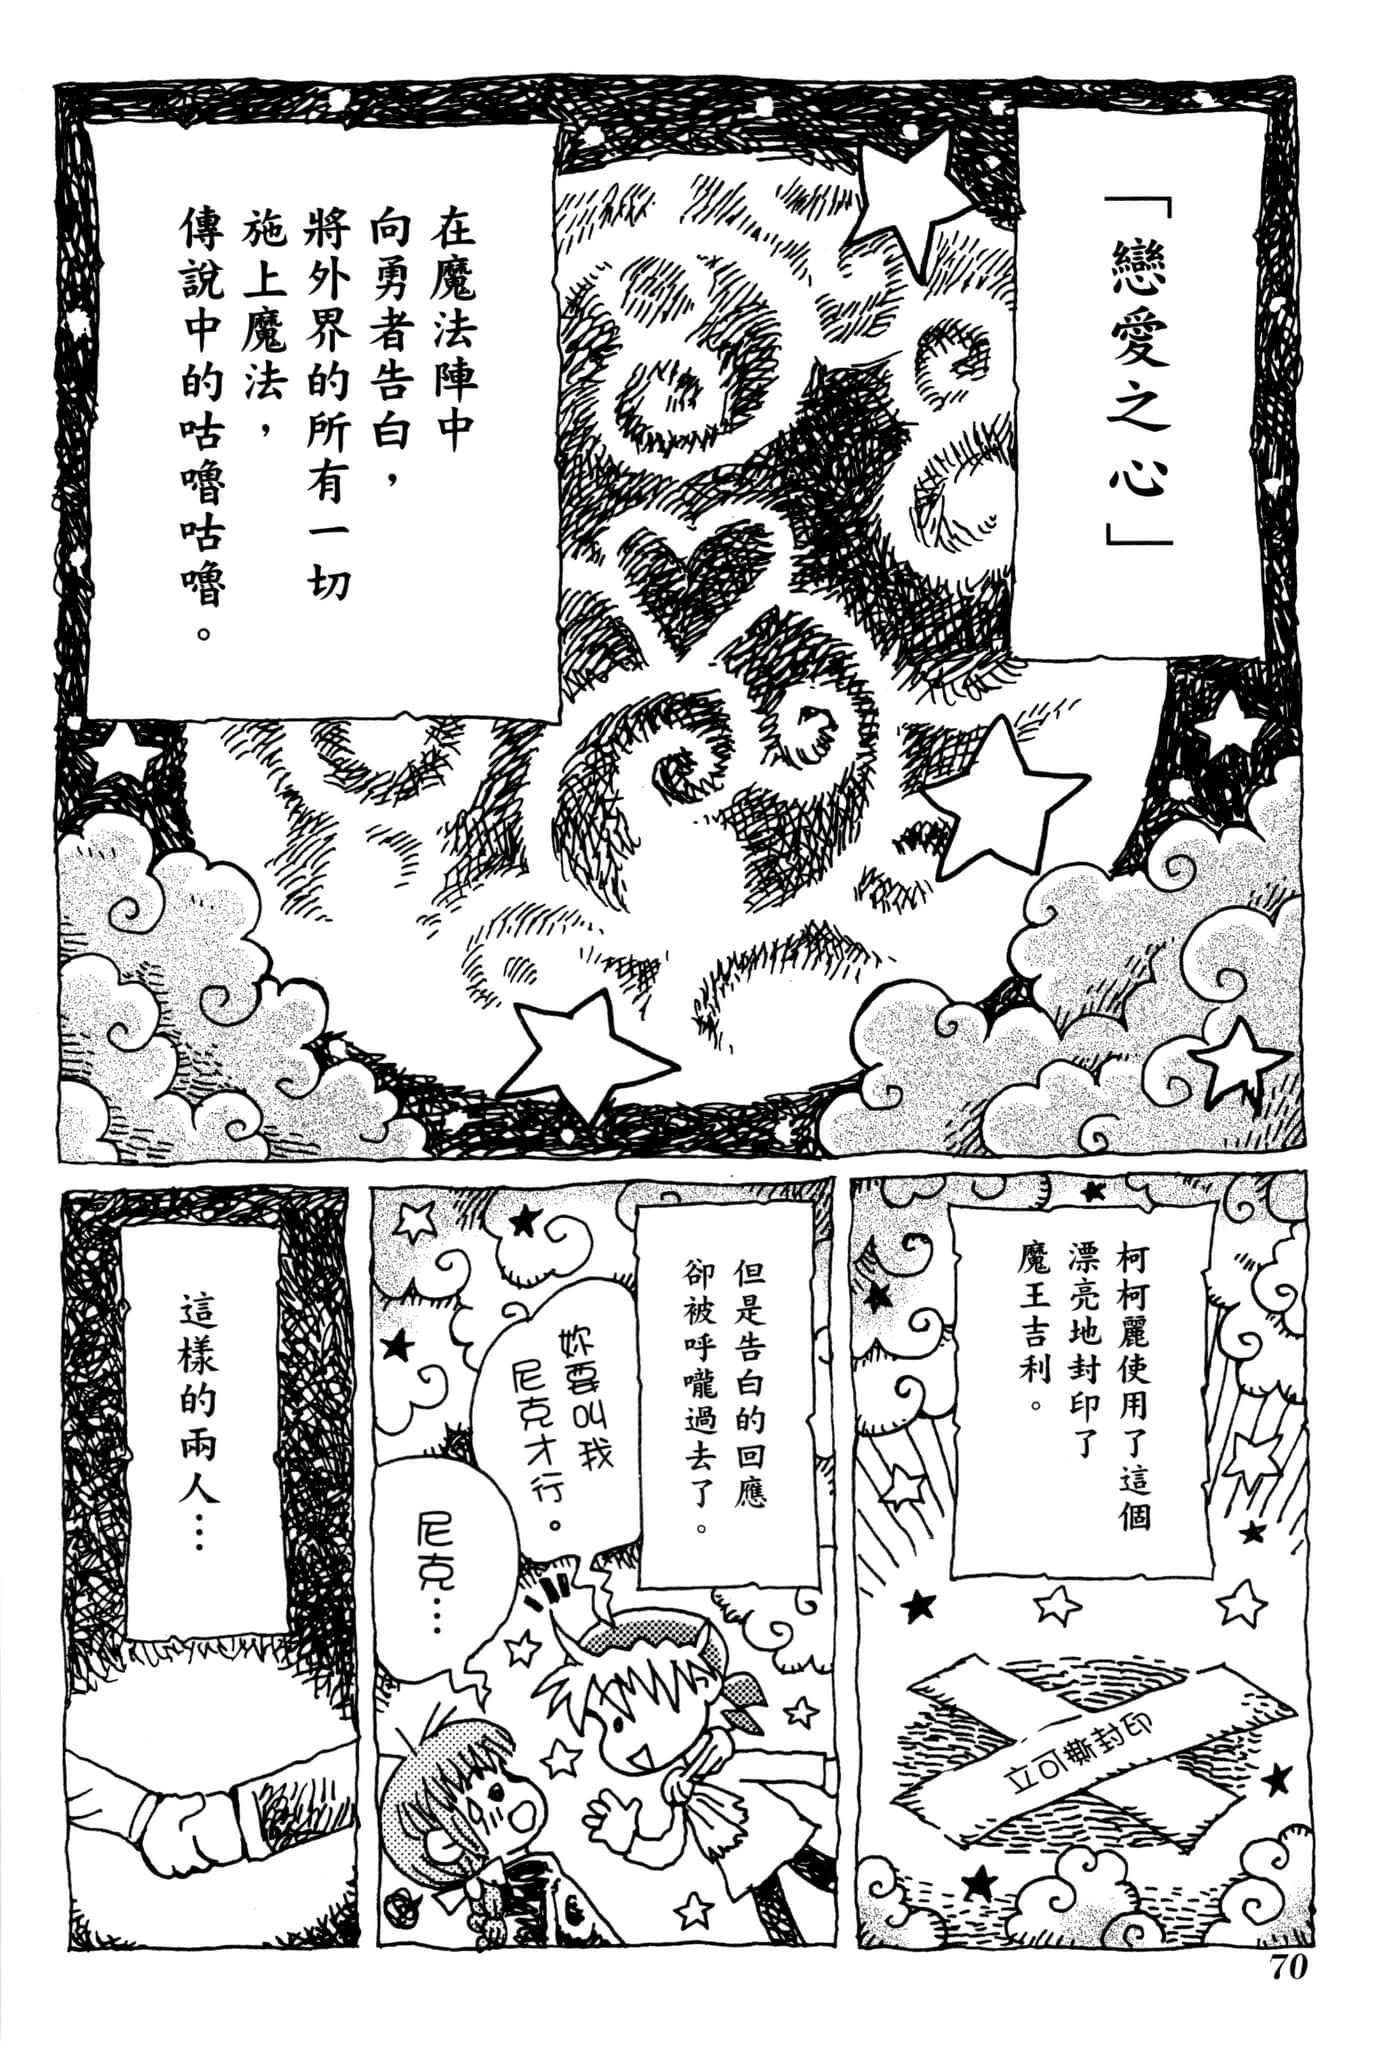 「戀愛之心」
在魔法陣中
向勇者告白，
將外界的所有一切
施上魔法，
傳說中的咕嚕咕嚕。
柯柯麗使用了這個
漂亮地封印了
魔王吉利。
立可撕封印
但是告白的回應
卻被呼嚨過去了。
妳要叫我
尼克才行。
尼克…
這樣的兩人…
70